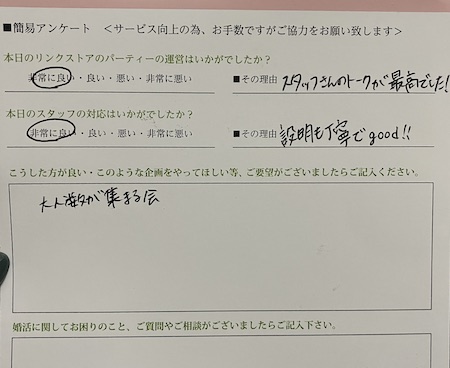 ■簡易アンケート ＜サービス向上の為、お手数ですがご協力をお願い致します＞
本日のリンクストアのパーティーの運営はいかがでしたか？
非常に良い・良い・悪い・非常に悪い ■その理由 スタッフさんのトークが最高でした!
本日のスタッフの対応はいかがでしたか？
非常に良い・良い・悪い・非常に悪い ■その理由 説明も丁寧でgood!!
こうした方が良い・このような企画をやってほしい等、ご要望がございましたらご記入ください。
大人数が集まる会
婚活に関してお困りのこと、ご質問やご相談がございましたらご記入下さい。